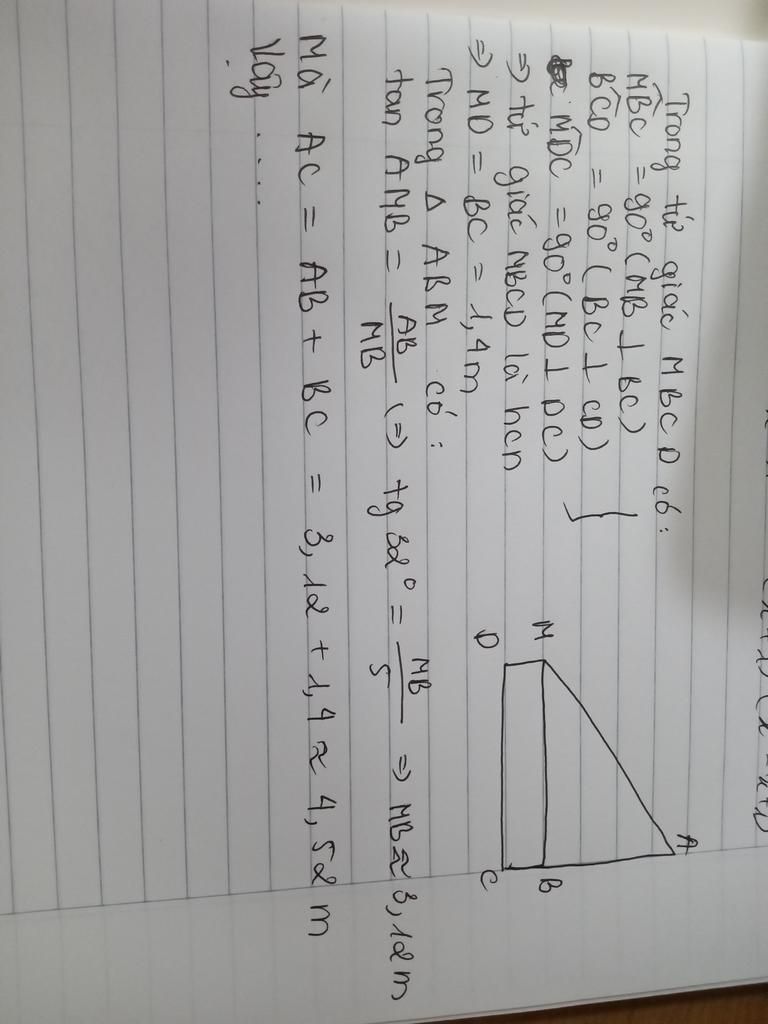 Trong tứ giác MBCD có:
MBC = 90° (MB ⊥ BC)
BCD = 90° (BC ⊥ CD)
MDC = 90° (MD ⊥ DC)
⇒ tứ giác MBCD là hcn
⇒ MD = BC = 1,4m
Trong Δ ABM có:
tan AMB = AB/MB (=) tg 32° = MB/5 ⇒ MB ≈ 3,12m
Mà AC = AB + BC = 3,12 + 1,4 ≈ 4,52m
Vậy ....
A
M
B
D
C